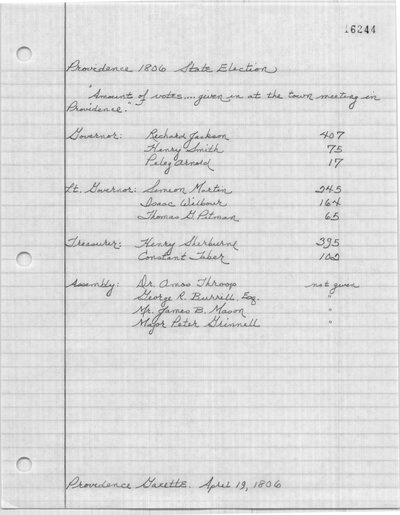 16244
Providence 1806 State Election
"Amount of votes.... given in at the town meeting in
Providence."
Governor: Richard Jackson 407
Henry Smith 75
Peleg Arnold 17
Lt. Governor: Simeon Martin 245
Isaac Wilbour 164
Thomas G. Pitman 65
Treasurer: Henry Sherburne 395
Constant Taber 102
Assembly: Dr. Amos Throop not given
George R. Burrell, Esq. "
Mr. James B. Mason "
Major Peter Grinnell "
Providence Gazette. April 19, 1806